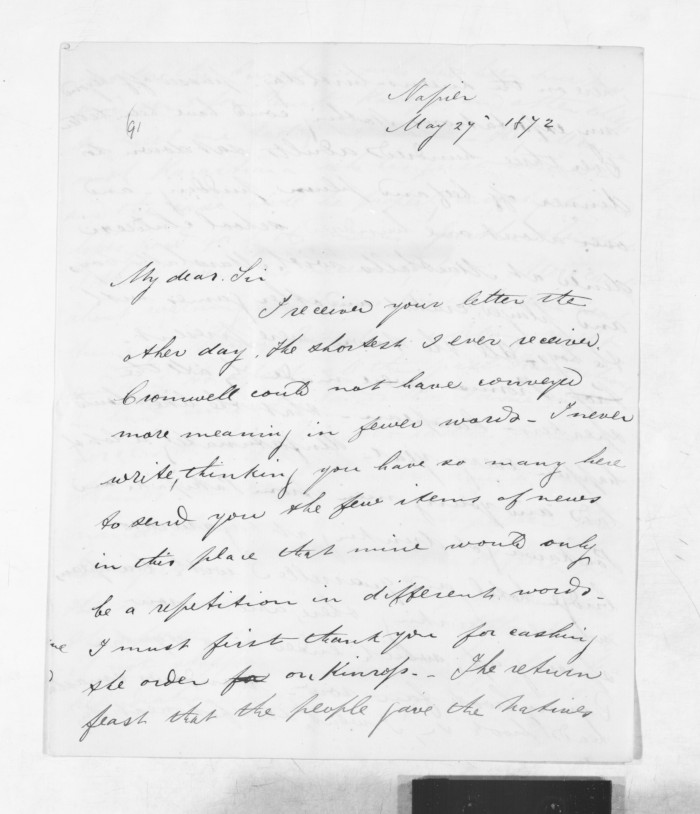 Napier
May 27 1872
(91
My dear Sir
I received your letter the
other day, the shortest I ever received.
Cromwell could not have conveyed
more meaning in fewer words - I never
write, thinking you have so many here
to send you the few items of news
in this place that mine would only
be a repetition in different words -
I must first thank you for cashing
the order for on Kinross - The return
feast that the people gave the Natives